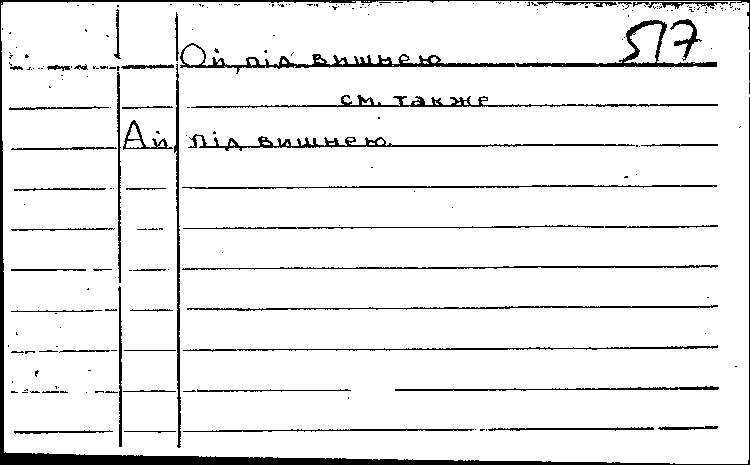 517
Ой, під вишнею
см. также
Ай, під вишнею.